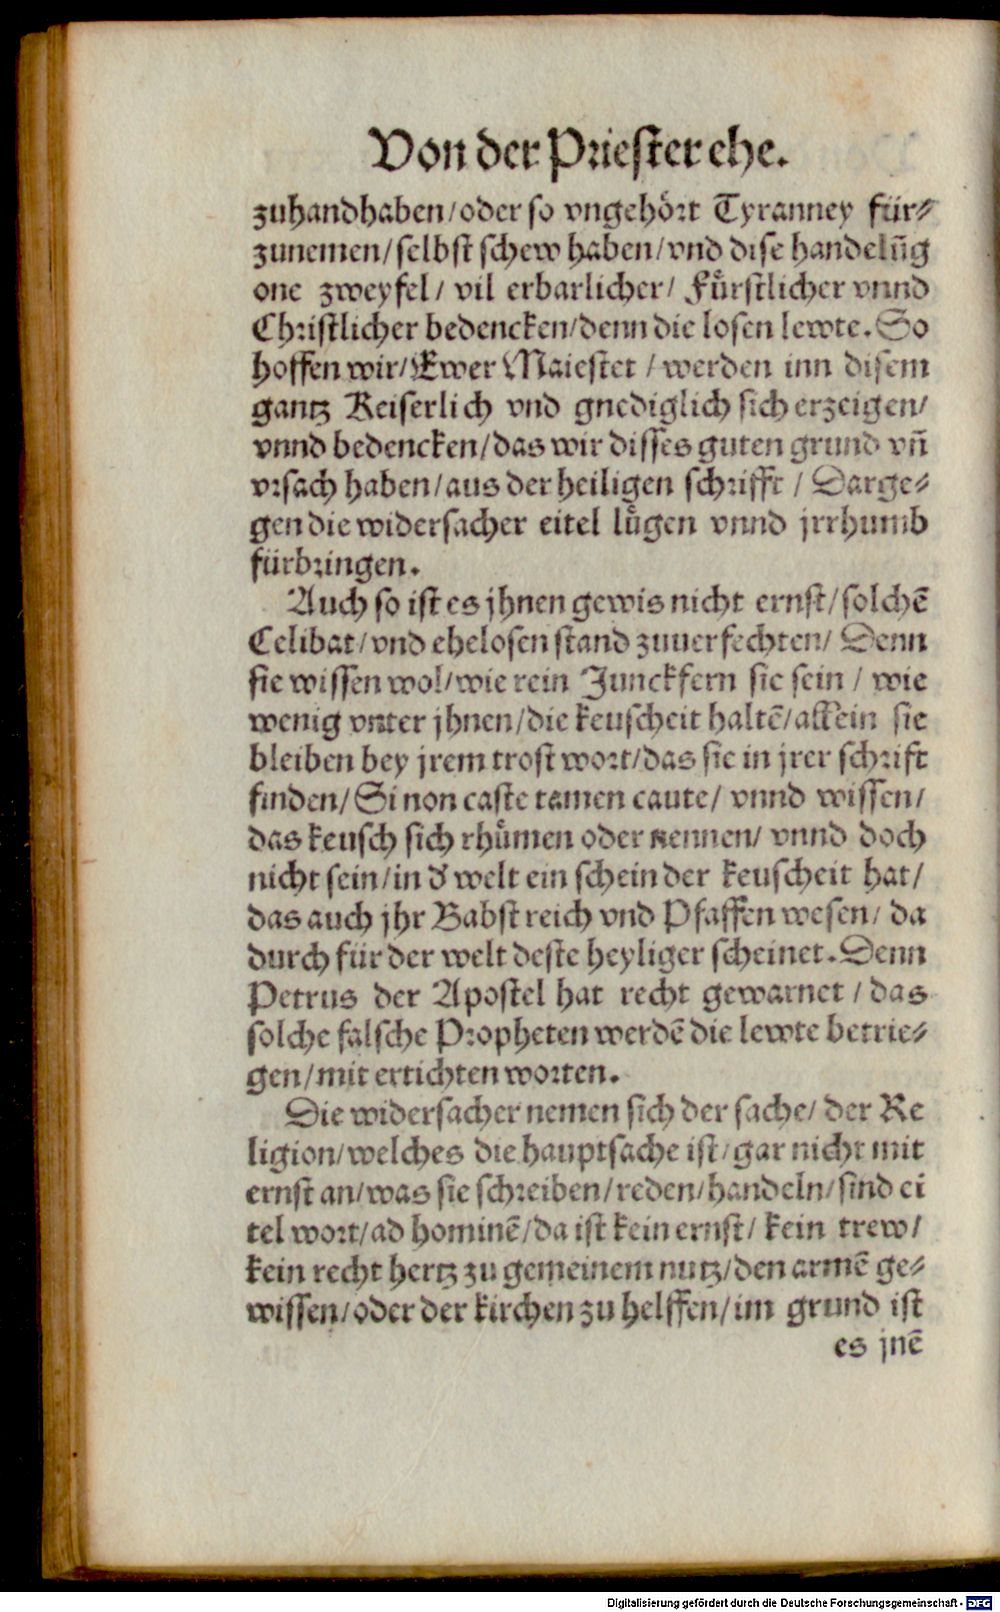 Von der Priester ehe.
zuhandhaben/oder so vngehoͤrt Tyranney fuͤr⸗
zunemen/selbst schew haben/vnd dise handelūg
one zweyfel/ vil erbarlicher/ Fuͤrstlicher vnnd
Christlicher bedencken/denn die losen lewte. So
hoffen wir/Ewer Maiestet / werden inn disem
gantz Keiserlich vnd gnediglich sich erzeigen/
vnnd bedencken/das wir disses guten grund vn̄
vrsach haben/aus der heiligen schrifft / Darge⸗
gen die widersacher eitel luͤgen vnnd jrrhumb
fuͤrbringen.
Auch so ist es jhnen gewis nicht ernst/solchē
Celibat/vnd ehelosen stand zuuerfechten/ Denn
sie wissen wol/wie rein Junckfern sie sein / wie
wenig vnter jhnen/die keuscheit haltē/allein sie
bleiben bey jrem trost wort/das sie in jrer schrift
finden/ Si non caste tamen caute/ vnnd wissen/
das keusch sich rhuͤmen oder nennen/ vnnd doch
nicht sein/in d̕ welt ein schein der keuscheit hat/
das auch jhr Babstreich vnd Pfaffen wesen/ da
durch fuͤr der welt deste heyliger scheinet. Denn
Petrus der Apostel hat recht gewarnet / das
solche falsche Propheten werdē die lewte betrie⸗
gen/mit ertichten worten.
Die widersacher nemen sich der sache/ der Re
ligion/welches die hauptsache ist/gar nicht mit
ernst an/was sie schreiben/reden/handeln/sind ei
tel wort/ad hominē/da ist kein ernst/ kein trew/
kein recht hertz zu gemeinem nutz/den armē ge⸗
wissen/oder der kirchen zu helffen/im grund ist
es jnē
Digitalisierung gefördert durch die Deutsche Forschungsgemeinschaft - DFG